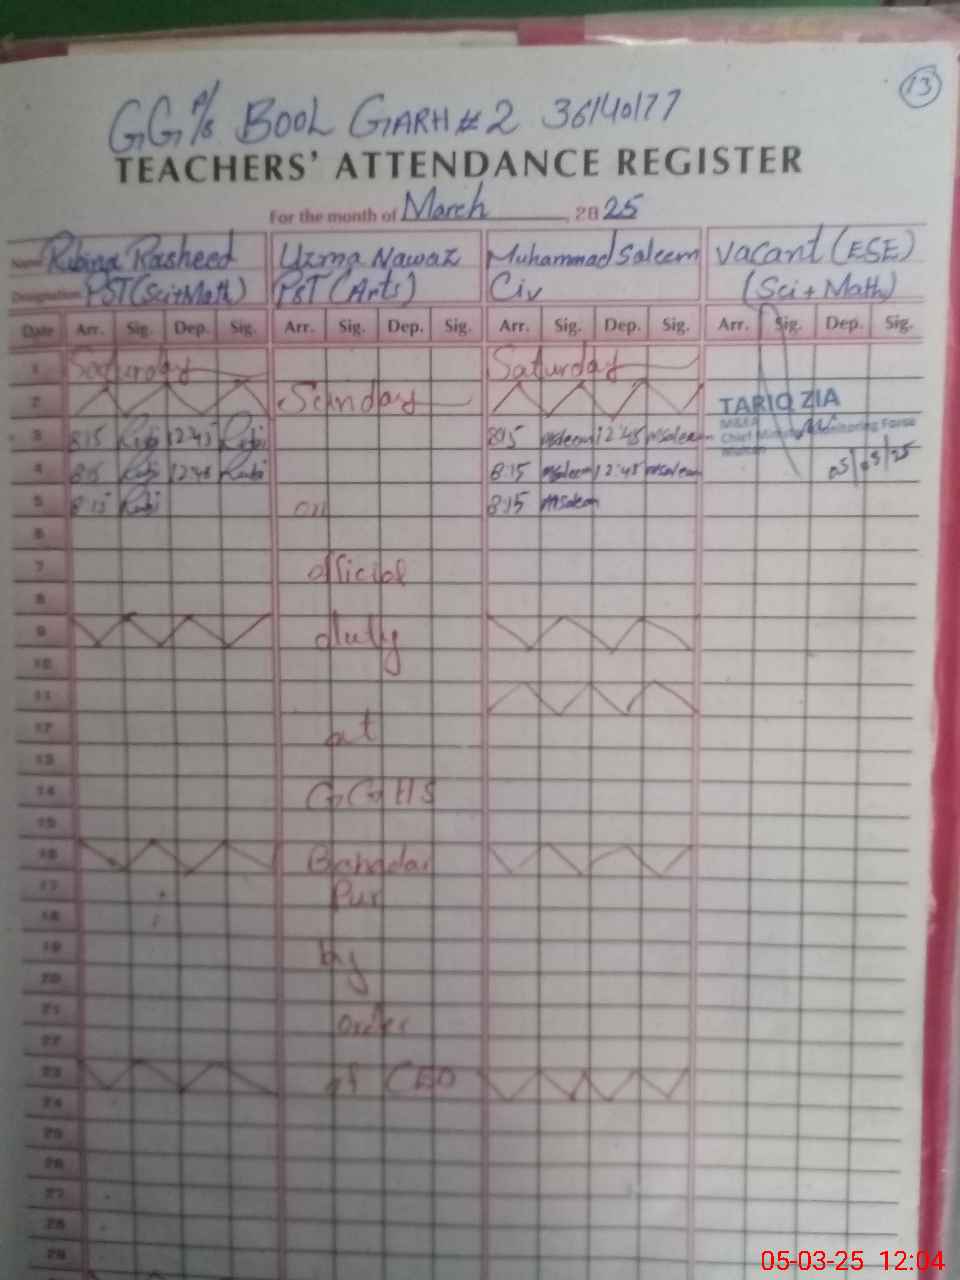 13
GG P/S BOOL GARH # 2 36140177
TEACHERS' ATTENDANCE REGISTER
For the month of March 2025
Name Rubina Rasheed Uzma Nawaz Muhammad Saleem Vacant (ESE)
Designation PST (Sci+Math) PST (Arts) Civ (Sci + Math)
Date Arr. Sig. Dep. Sig. Arr. Sig. Dep. Sig. Arr. Sig. Dep. Sig. Arr. Sig. Dep. Sig.
1 Saturday Saturday
2 Sunday TARIQ ZIA
3 8:15 Rubi 12:45 Rubi 8:15 MSaleem 12:45 MSaleem M&EA
Chief Monitoring Force
4 8:15 Rubi 12:45 Rubi 8:15 MSaleem 12:45 MSaleem 05/03/25
5 8:15 Rubi on 8:15 MSaleem
6
7 official
8
9 duty
10
11
12 at
13
14 GGHS
15
16 Bahadar
17 Pur
18
19 by
20
21 order
22
23 of CEO
24
25
26
27
28
29
05-03-25 12:04